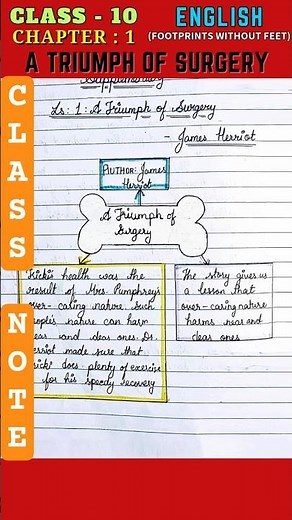 CLASS - 10
ENGLISH
CHAPTER : 1
(FOOTPRINTS WITHOUT FEET)
A TRIUMPH OF SURGERY
CLASS NOTE
Supplementary
Ls: 1: A Triumph of Surgery
- James Herriot
Author: James
Herriot
A Triumph of
Surgery
Tricki's health was the
result of Mrs. Pumphrey's
over-caring nature. Such
people's nature can harm
near and dear ones. Dr.
Herriot made sure that
Tricki does plenty of exercise
for his speedy recovery
The story gives us
a lesson that
over-caring nature
harms near and
dear ones